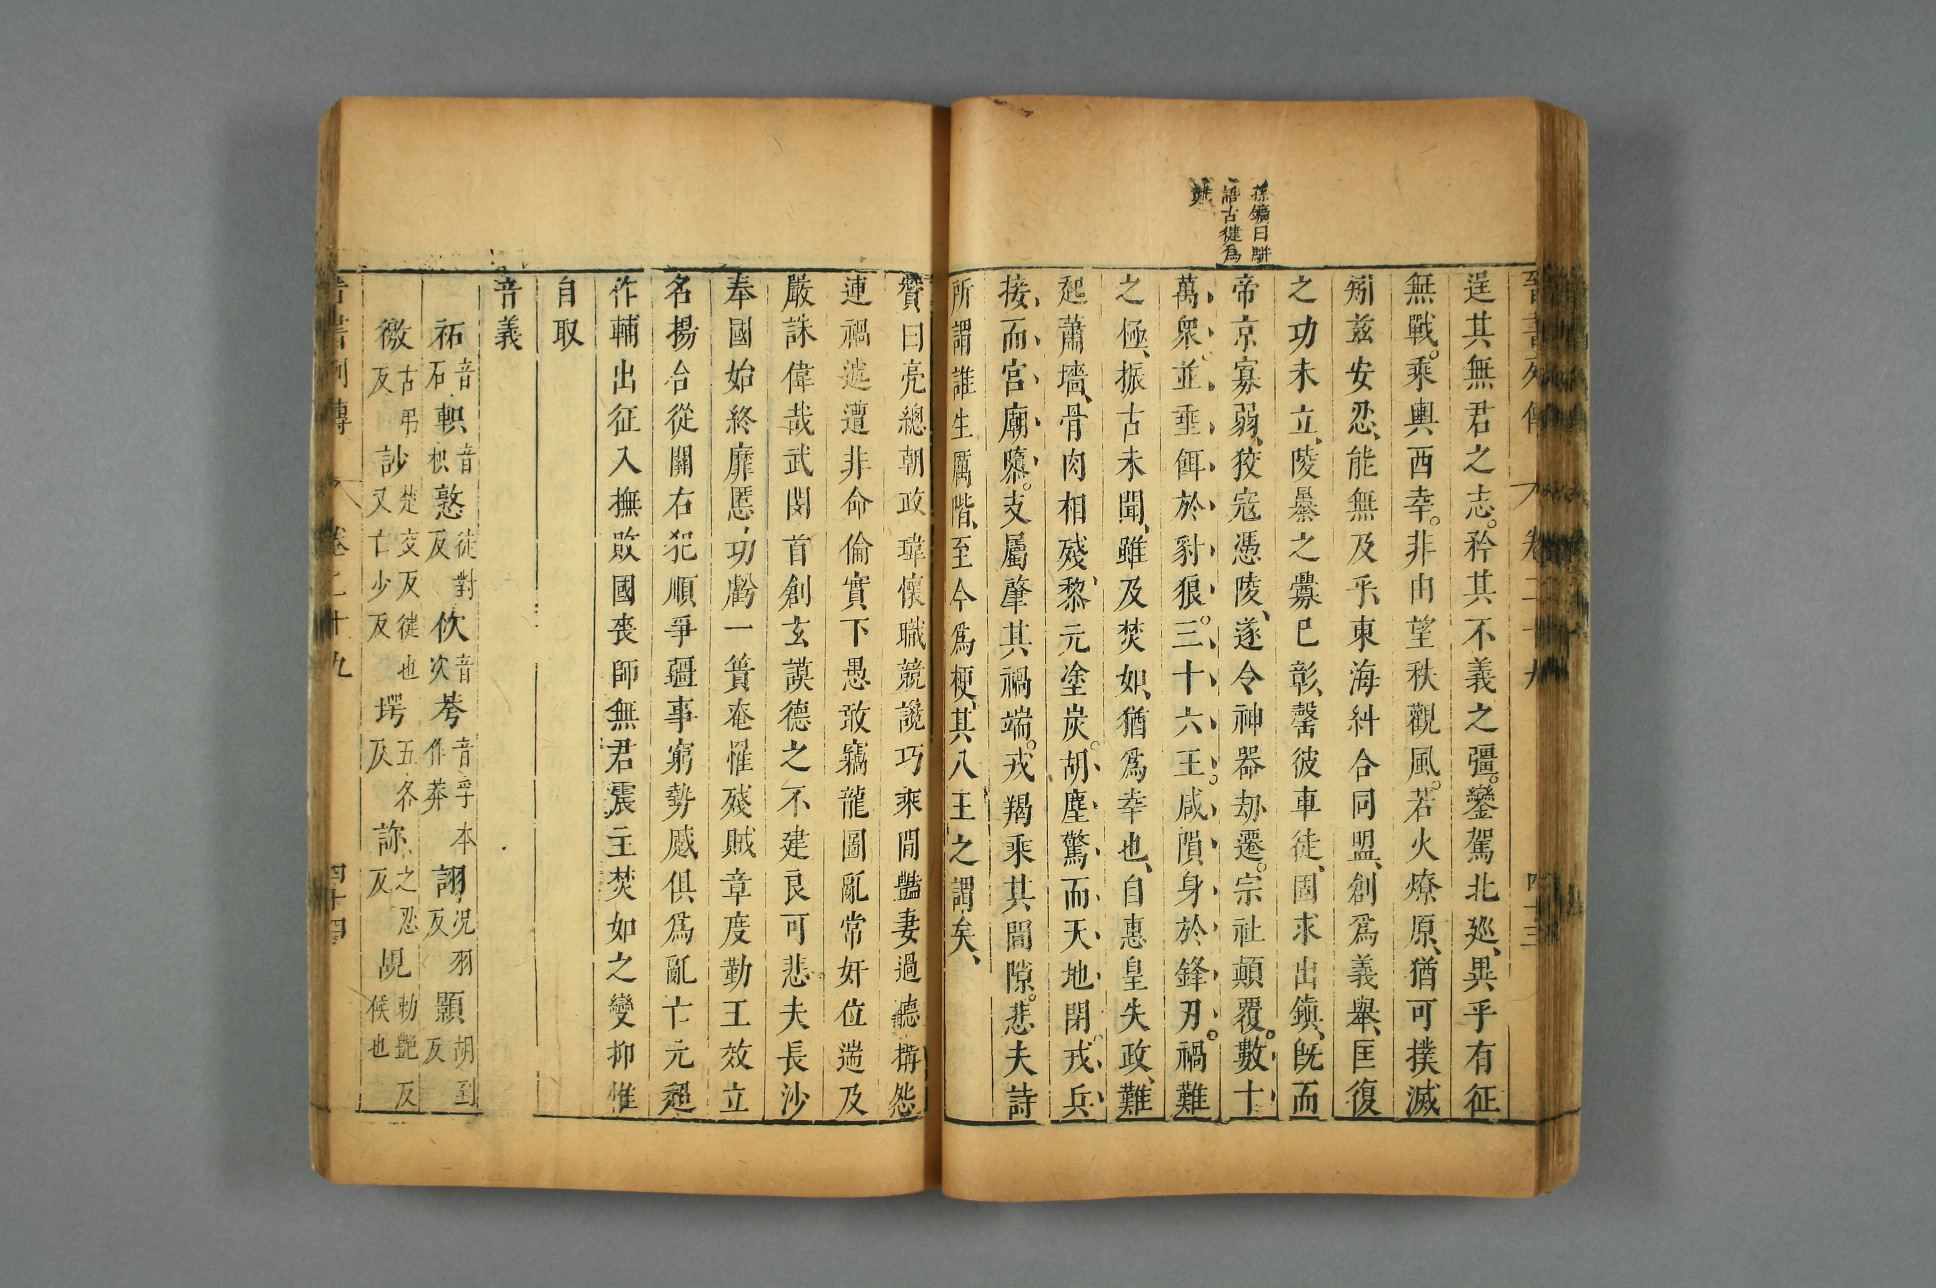 孫鑛曰駢
語古健爲
難
逞其無君之志。矜其不義之彊。鑾駕北廵、異乎有征
無戰。乘輿西幸。非由望秩觀風。若火燎原、猶可撲滅
矧茲安忍、能無及乎、東海糾合同盟、創爲義舉、匡復
之功未立、陵暴之釁已彰、罄彼車徒、固求出鎮、旣而
帝京寡弱、狡寇憑陵、遂令神器刼遷。宗社顛覆。數十
萬衆。並垂餌於豺狼。三十六王。咸隕身於鋒刃。禍難
之極、振古未聞、雖及焚如、猶爲幸也、自惠皇失政、難
起蕭墻、骨肉相殘、黎元塗炭。胡塵驚而天地閉。戎兵
接而宮廟隳。支屬肇其禍端。戎羯乘其間隙。悲夫詩
所謂誰生厲階、至今爲梗、其八王之謂矣、
贊曰亮總朝政瑋懷職競讒巧乘閒豔妻過聽構怨
連禍遞遭非命倫實下愚敢竊龍圖亂常奸位遄及
嚴誅偉哉武閔首創玄謨德之不建良可悲夫長沙
奉國始終靡慝功虧一簣奄罹殘賊章度勤王效立
名揚合從關右犯順爭疆事窮勢蹙俱爲亂亡元超
作輔出征入撫敗國喪師無君震主焚如之變抑惟
自取
音義
祏音石 軹音枳 憝徒對反 佽音次 莩音孚本作莽 詡况羽反 顥胡到反
徼古弔反 訬楚交反徤也又亡少反 堮五各反 訴之忍反 覘勑豔反候也
晋書列傳 卷二十九 四十四